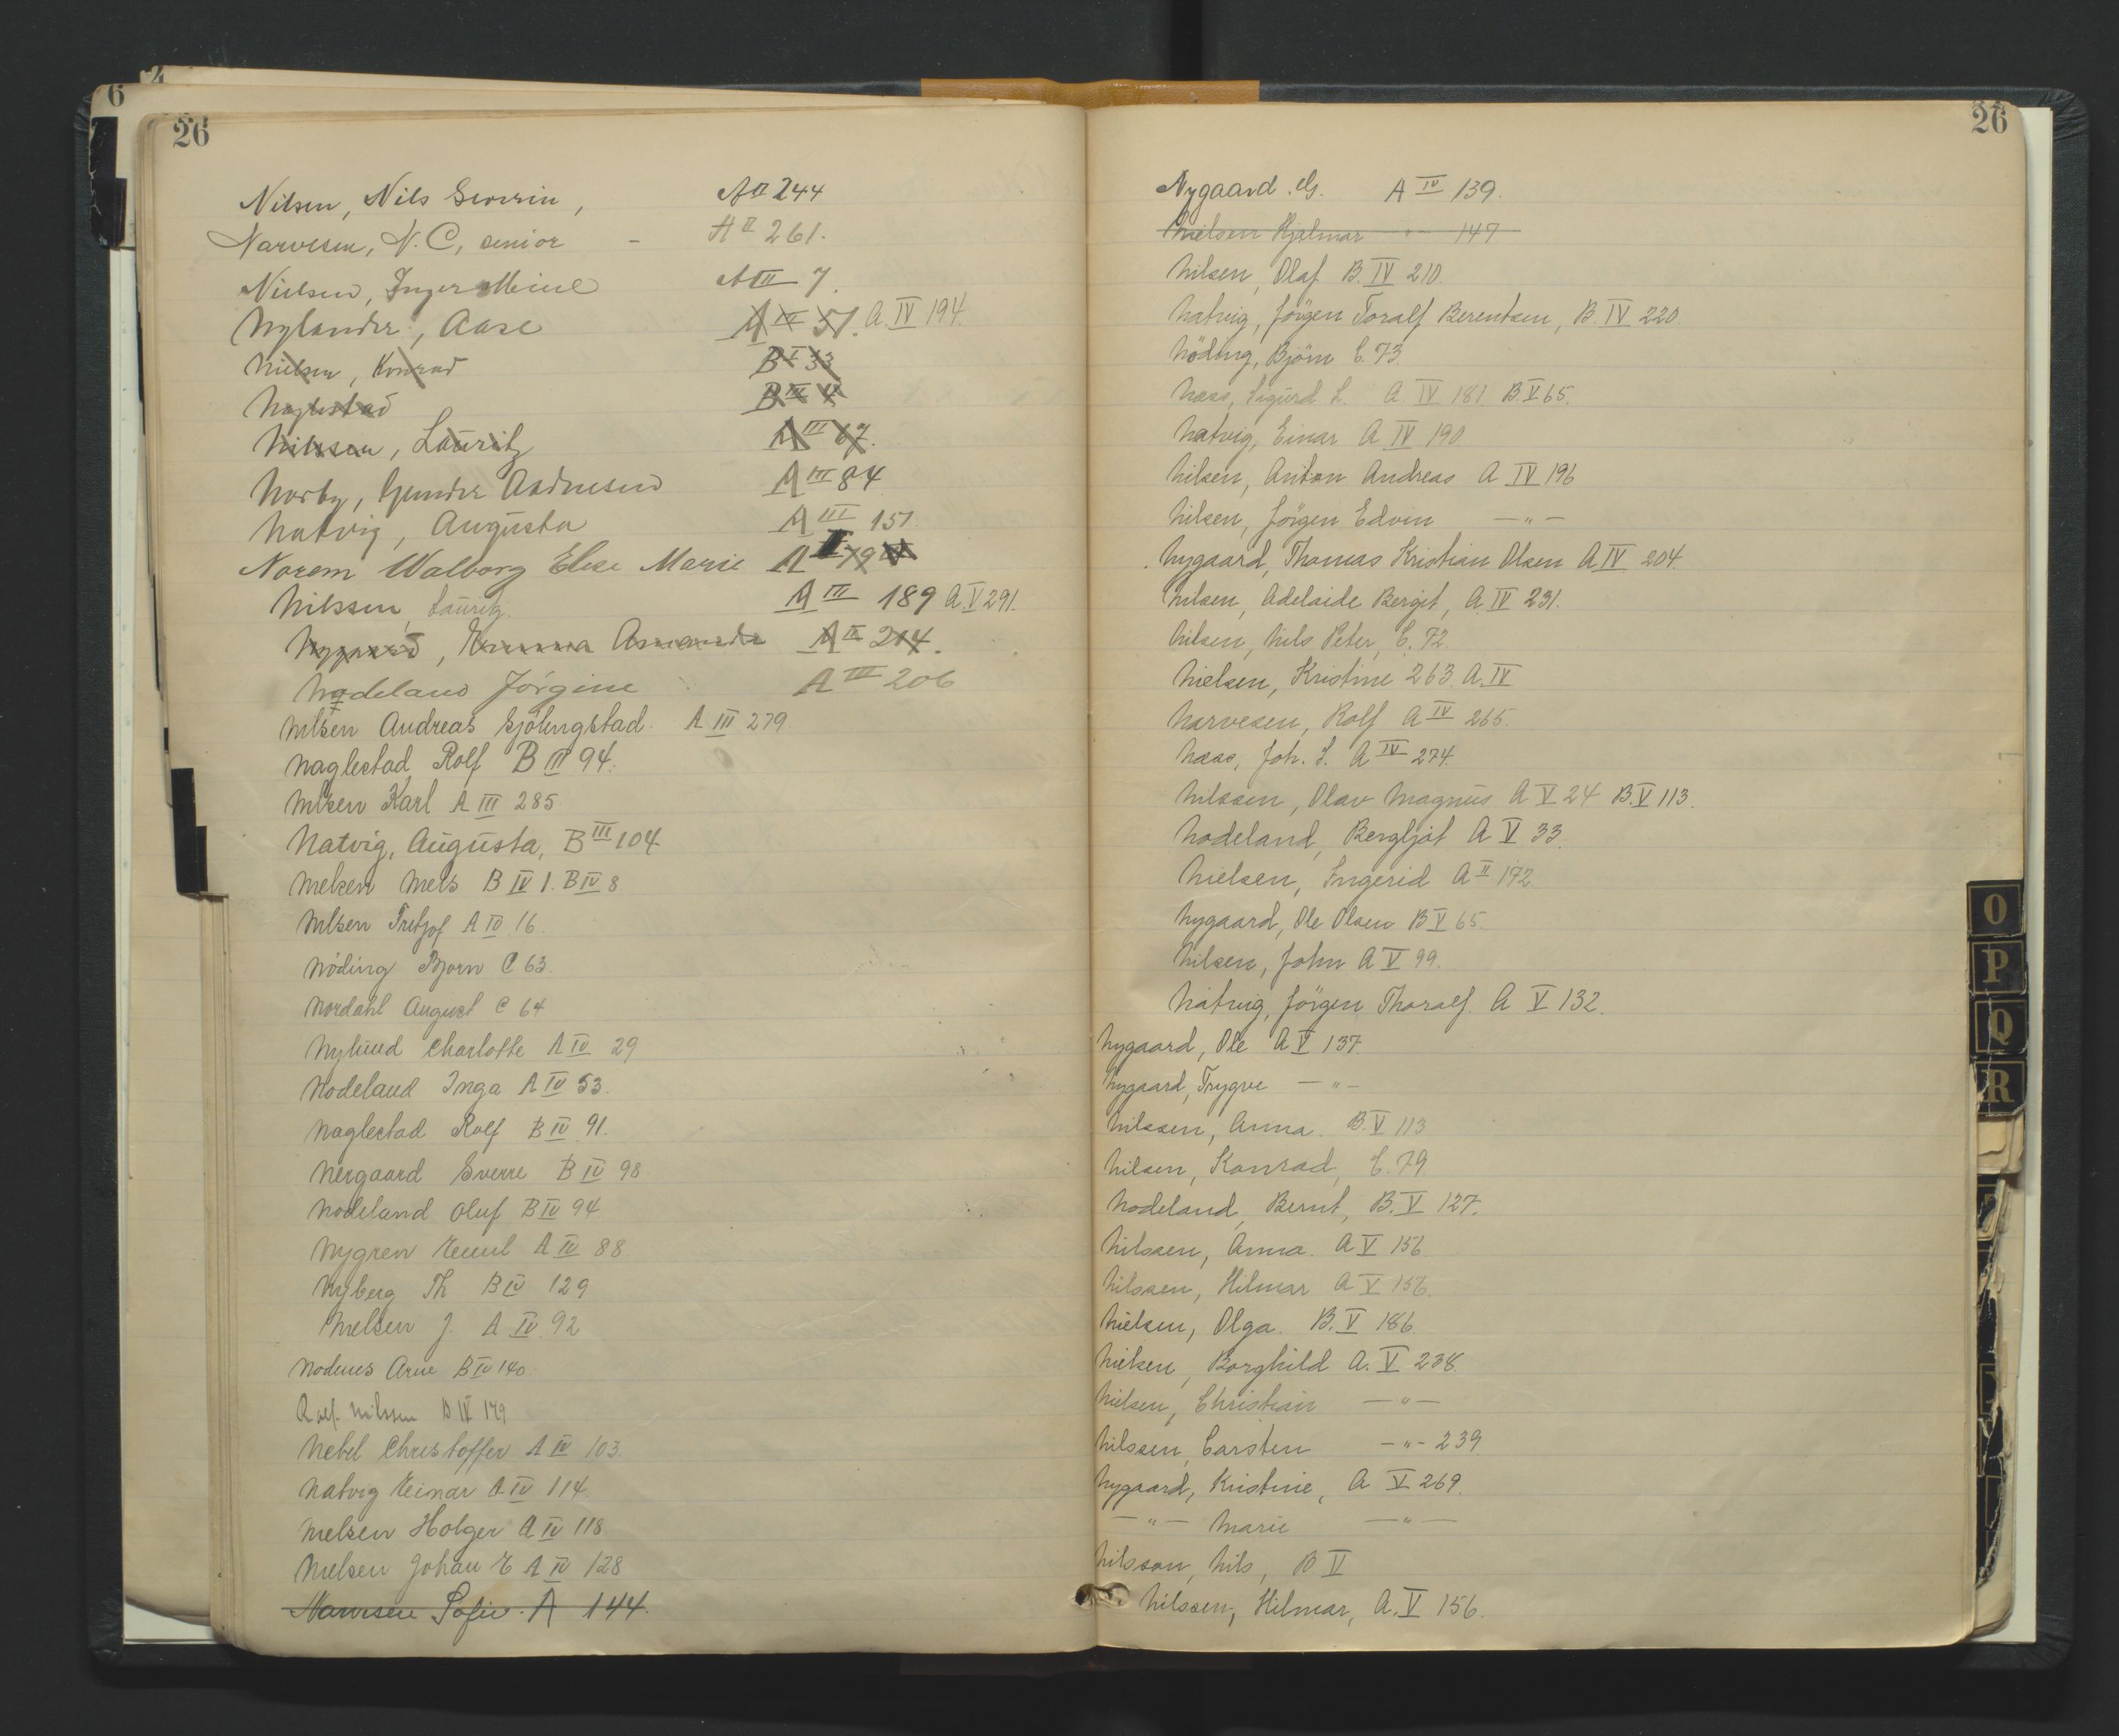 6
26
Nilsen, Nils Severin, A II 244
Narvesen, N. C, senior - A II 261.
Nielsen, Inger A III 7.
Nylander, Aase A III 51. A. IV 194.
Nielsen, Konrad B I 33
Naglestad B III 4
Nilssen, Lauritz A III 67.
Norby, Gunder Andresen A III 84
Natvig, Augusta A III 151
Norem Walborg Elise Marie A 179
Nilssen, Lauritz. A III 189 A. V 291.
Nygaard, Emma Amanda A II 214.
Nodeland Jörgine A III 206
Nilsen Andreas Gjölingstad. A III 279
Naglestad, Rolf B III 94.
Nilsen Karl A III 285
Natvig, Augusta, B III 104
Nielsen Niels B IV 1. B IV 8
Nilsen Fritjof A IV 16.
Nöding Bjorn C 63.
Nordahl August C 64
Nylund Charlotte A IV 29
Nodeland Inga A IV 53.
Naglestad Rolf B IV 91.
Nergaard Sverre B IV 98.
Nodeland Oluf B IV 94
Nygren Emil A IV 88
Nyberg Th B IV 129
Nielsen J. A IV 92
Nodenes Arne B IV 140.
Ralf Nilssen B IV 179
Nebel Christoffer A IV 103.
Natvig Einar A IV 114
Nielsen Holger A IV 118
Nielsen Johan E A IV 128
Narvesen Sofie. A 144.
26
Nygaard A IV 139.
Nielsen Hjalmar " 147
Nilsen, Olaf B. IV 210.
Natvig, Jörgen Toralf Berentsen, B. IV 220.
Nöding, Björn C. 73.
Næss, Sigurd L. A. IV 181. B. V 65.
Natvig, Einar A IV 190
Nilsen, Anton Andreas A IV 196
Nilsen, Jörgen Edvin — " —
Nygaard, Thomas Kristian Olsen A IV 204.
Nilsen, Adelaide Bergit, A. IV 231.
Nilsen, Nils Peter, C. 72.
Nielsen, Kristine 263. A. IV
Narvesen, Rolf A IV 265.
Næss, Joh. S. A IV 274.
Nilssen, Olav Magnus A V 24 B. V 113.
Nodeland, Bergljot A V 33.
Nielsen, Ingerid A II 172.
Nygaard, Ole Olsen B V 65.
Nilsen, John A V 99.
Natvig, Jörgen Thoralf. A V 132.
Nygaard, Ole A V 137.
Nygaard, Trygve — " —
Nilssen, Anna. B. V 113
Nilsen, Konrad, C. 79
Nodeland, Bernt, B. V 127.
Nilssen, Anna. A V 156.
Nilssen, Hilmar A V 156.
Nielsen, Olga. B. V 186.
Nielsen, Borghild A. V 238.
Nielsen, Christian — " —
Nilssen, Carsten — " — 239
Nygaard, Kristine, A V 269.
— " — Marie — " —
Nilsson, Nils, B V
Nilssen, Hilmar, A. V 156.
O
P
Q
R